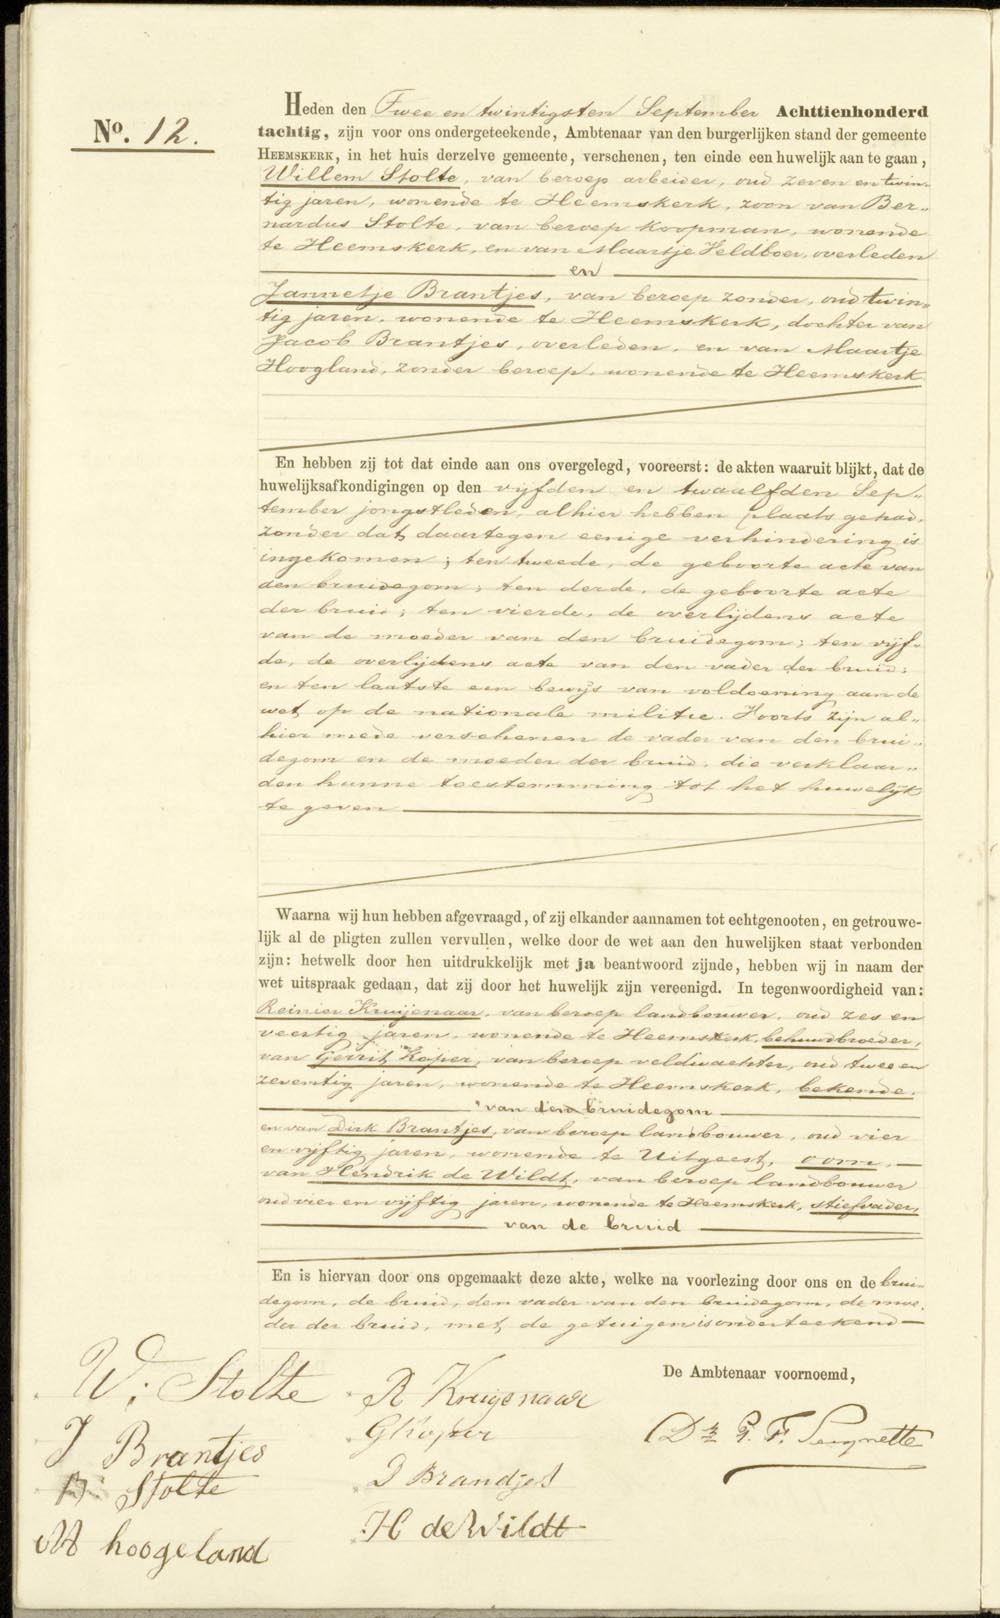 No. 12.
Heden den Twee en twintigsten September Achttienhonderd
tachtig, zijn voor ons ondergeteekende, Ambtenaar van den burgerlijken stand der gemeente
HEEMSKERK, in het huis derzelve gemeente, verschenen, ten einde een huwelijk aan te gaan,
Willem Stolte, van beroep arbeider, oud zeven en twin-
tig jaren, wonende te Heemskerk, zoon van Ber-
nardus Stolte, van beroep koopman, wonende
te Heemskerk, en van Maartje Veldboer, overleden
en
Jannetje Brantjes, van beroep zonder, oud twin-
tig jaren, wonende te Heemskerk, dochter van
Jacob Brantjes, overleden, en van Maartje
Hoogland, zonder beroep, wonende te Heemskerk
En hebben zij tot dat einde aan ons overgelegd, vooreerst: de akten waaruit blijkt, dat de
huwelijksafkondigingen op den vijfden en twaalfden Sep-
tember jongstleden, alhier hebben plaats gehad,
zonder dat daartegen eenige verhindering is
ingekomen; ten tweede, de geboorte acte van
den bruidegom; ten derde, de geboorte acte
der bruid; ten vierde, de overlijdens acte
van de moeder van den bruidegom; ten vijf-
de, de overlijdens acte van den vader der bruid;
en ten laatste een bewijs van voldoening aan de
wet op de nationale militie. Voorts zijn al-
hier mede verschenen de vader van den brui-
degom en de moeder der bruid, die verklaar-
den hunne toestemming tot het huwelijk
te geven
Waarna wij hun hebben afgevraagd, of zij elkander aannamen tot echtgenooten, en getrouwe-
lijk al de pligten zullen vervullen, welke door de wet aan den huwelijken staat verbonden
zijn: hetwelk door hen uitdrukkelijk met ja beantwoord zijnde, hebben wij in naam der
wet uitspraak gedaan, dat zij door het huwelijk zijn vereenigd. In tegenwoordigheid van:
Reinier Kruijenaar, van beroep landbouwer, oud zes en
veertig jaren, wonende te Heemskerk, behuwdbroeder,
van Gerrit Koper, van beroep veldwachter, oud twee en
zeventig jaren, wonende te Heemskerk, bekende,
van den bruidegom
en van Dirk Brantjes, van beroep landbouwer, oud vier
en vijftig jaren, wonende te Uitgeest, oom,
van Hendrik de Wildt, van beroep landbouwer
oud vier en vijftig jaren, wonende te Heemskerk, stiefvader,
van de bruid
En is hiervan door ons opgemaakt deze akte, welke na voorlezing door ons en de brui-
degom, de bruid, den vader van den bruidegom, de moe-
der der bruid, met de getuigen is onderteekend
De Ambtenaar voornoemd,
W: Stolte
R Kruijenaar
J Brantjes
GKoper
B: Stolte
D Brandjes
M hoogeland
H de Wildt